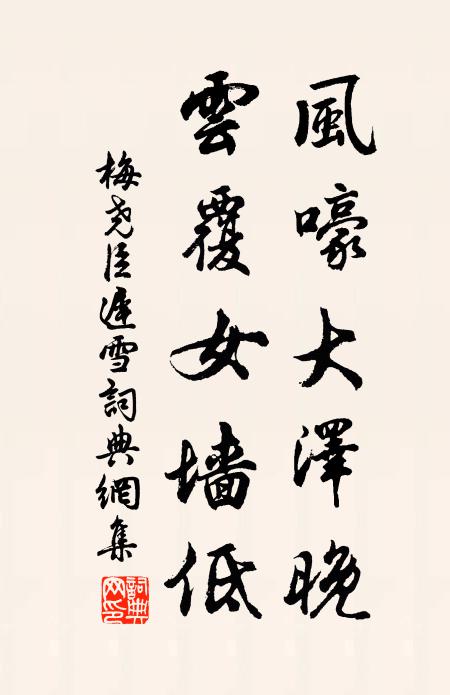 風嚎大澤晚
雲覆女墻低
梅尧臣遲雪詞典網集
詞典網印